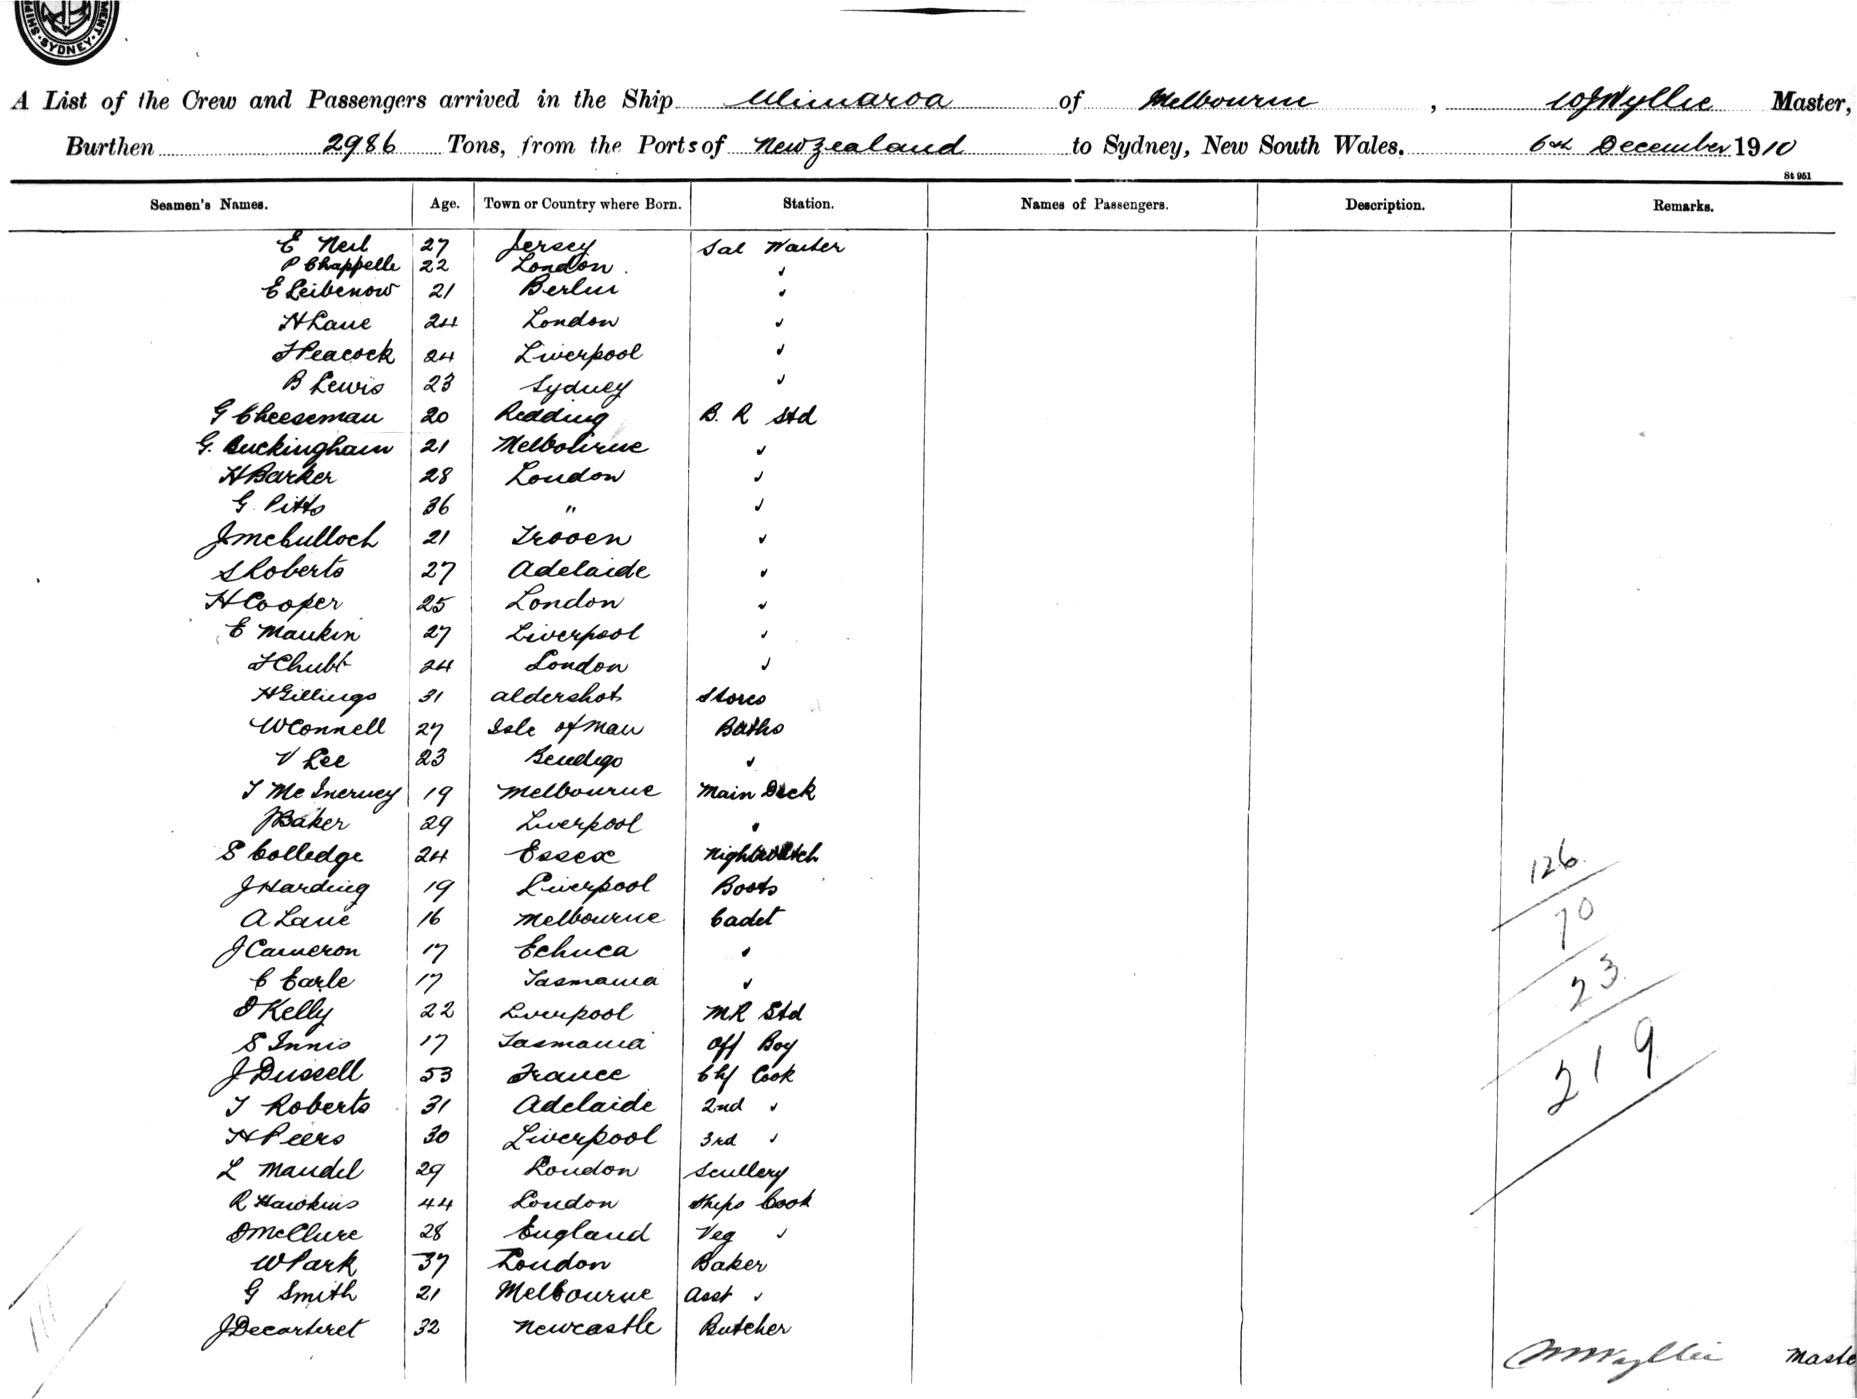 SHIPS · SYDNEY · MENT
A List of the Crew and Passengers arrived in the Ship Ulimaroa of Melbourne, WJWyllie Master,
Burthen 2986 Tons, from the Ports of New Zealand to Sydney, New South Wales. 6th December 1910
St 951
Seamen's Names. Age. Town or Country where Born. Station. Names of Passengers. Description. Remarks.
E Neil 27 Jersey Sal Waiter
P Chappelle 22 London "
E Leibenow 21 Berlin "
H Lane 24 London "
J Peacock 24 Liverpool "
B Lewis 23 Sydney "
G Cheeseman 20 Redding B. R Std
G. Buckingham 21 Melbourne "
H Barker 28 London "
G. Pitts 36 " "
J McCulloch 21 Trooen "
S Roberts 27 Adelaide "
H Cooper 25 London "
E Mankin 27 Liverpool "
F Chubb 24 London "
H Gillings 31 Aldershot Stores
W Connell 27 Isle of Man Baths
V Lee 23 Bendigo "
T McInerney 19 Melbourne Main Deck
J Baker 29 Liverpool "
S Colledge 24 Essex Nightwatch
J Harding 19 Liverpool Boots
A Lane 16 Melbourne Cadet
J Cameron 17 Echuca "
C Earle 17 Tasmania "
D Kelly 22 Liverpool MR Std
S Innis 17 Tasmania Off Boy
J Dussell 53 France Chf Cook
T Roberts 31 Adelaide 2nd "
H Peers 30 Liverpool 3rd "
L Mandel 29 London Scullery
R Hawkins 44 London Ships Cook
D McClure 28 England Veg "
W Park 37 London Baker
G Smith 21 Melbourne Asst "
J Decarteret 32 Newcastle Butcher
126
70
23
219
WJWyllie Maste